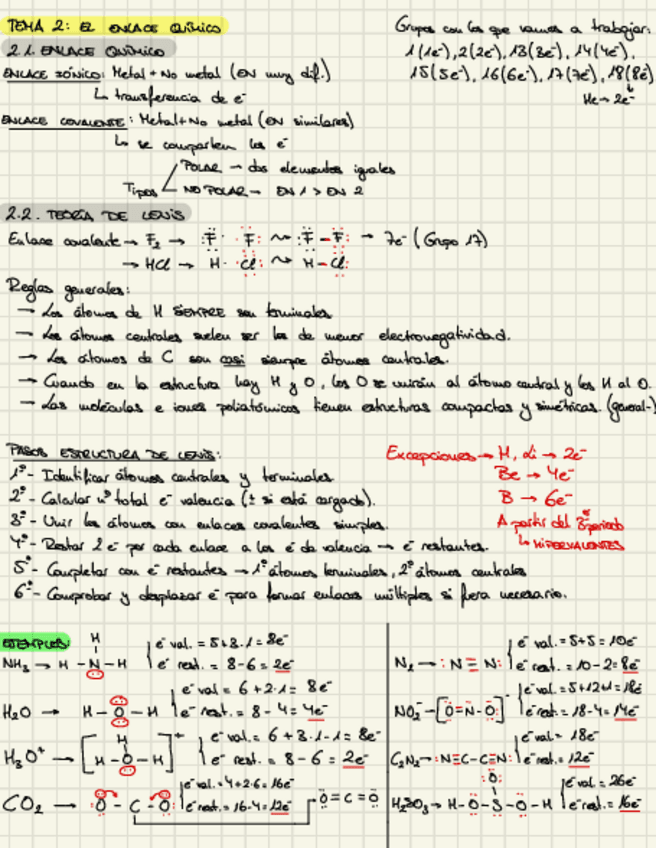 TEMA 2: EL ENLACE QUÍMICO
2.1. ENLACE QUÍMICO
ENLACE IÓNICO: Metal + No metal (EN muy dif.)
↳ transferencia de e⁻
ENLACE COVALENTE: Metal + No metal (EN similares)
↳ se comparten los e⁻
Tipos
POLAR → dos elementos iguales
NO POLAR → EN 1 > EN 2
Grupos con los que vamos a trabajar:
1(1e⁻), 2(2e⁻), 13(3e⁻), 14(4e⁻),
15(5e⁻), 16(6e⁻), 17(7e⁻), 18(8e⁻)
He → 2e⁻
2.2. TEORÍA DE LEWIS
Enlace covalente → F₂ → F F ⇝ F - F → 7e⁻ (Grupo 17)
→ HCl → H· Cl ⇝ H - Cl
Reglas generales:
→ Los átomos de H SIEMPRE son terminales
→ Los átomos centrales suelen ser los de menor electronegatividad.
→ Los átomos de C son casi siempre átomos centrales.
→ Cuando en la estructura hay H y O, los O se unirán al átomo central y los H al O.
→ Las moléculas e iones poliatómicos tienen estructuras compactas y simétricas. (general-)
PASOS ESTRUCTURA DE LEWIS:
1º- Identificar átomos centrales y terminales
2º- Calcular nº total e⁻ valencia (± si está cargado).
3º- Unir los átomos con enlaces covalentes simples.
4º- Restar 2 e⁻ por cada enlace a los e⁻ de valencia → e⁻ restantes.
5º- Completar con e⁻ restantes → 1º átomos terminales, 2º átomos centrales
6º- Comprobar y desplazar e⁻ para formar enlaces múltiples si fuera necesario.
Excepciones → H, Li → 2e⁻
Be → 4e⁻
B → 6e⁻
A partir del 3º periodo
↳ HIPERVALENTES
EJEMPLOS:
H
NH₃ → H - N - H
e⁻ val. = 5+3·1 = 8e⁻
e⁻ rest. = 8-6 = 2e⁻
H₂O → H - O - H
e⁻ val = 6+2·1 = 8e⁻
e⁻ rest. = 8-4 = 4e⁻
H
H₃O⁺ → [H - O - H]⁺
e⁻ val. = 6+3·1-1 = 8e⁻
e⁻ rest. = 8-6 = 2e⁻
CO₂ → O - C - O
e⁻ val. = 4+2·6 = 16e⁻
e⁻ rest. = 16-4 = 12e⁻
O = C = O
N₂ → :N ≡ N:
e⁻ val. = 5+5 = 10e⁻
e⁻ rest. = 10-2 = 8e⁻
NO₂⁻ → [O=N-O]⁻
e⁻ val. = 5+12+1 = 18e⁻
e⁻ rest. = 18-4 = 14e⁻
C₂N₂ → :N≡C-C≡N:
e⁻ val = 18e⁻
e⁻ rest. = 12e⁻
:O:
H₂SO₃ → H-O-S-O-H
e⁻ val. = 26e⁻
e⁻ rest. = 16e⁻